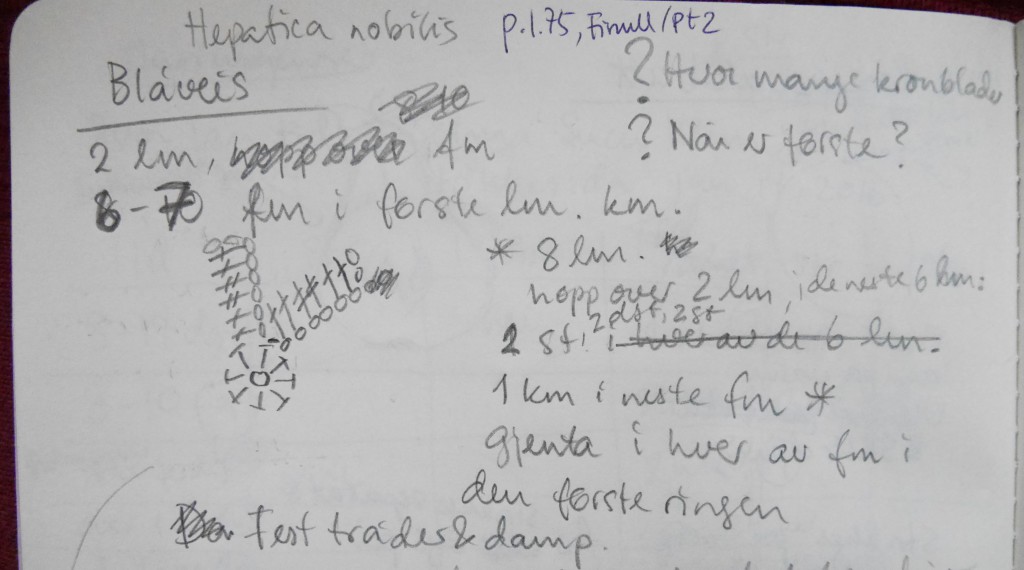 Hepatica nobilis p.1.75, Finull/Pt2
Blåveis
? Hvor mange kronblader
? Når er første?
2 lm, fm
6-7 fm i første lm. km.
* 8 lm.
hopp over 2 lm, i de neste 6 lm:
2 st, 2 dst, 2 st
i hver av de 6 lm.
1 km i neste fm *
gjenta i hver av fm i
den første ringen
Fest tråder & damp.